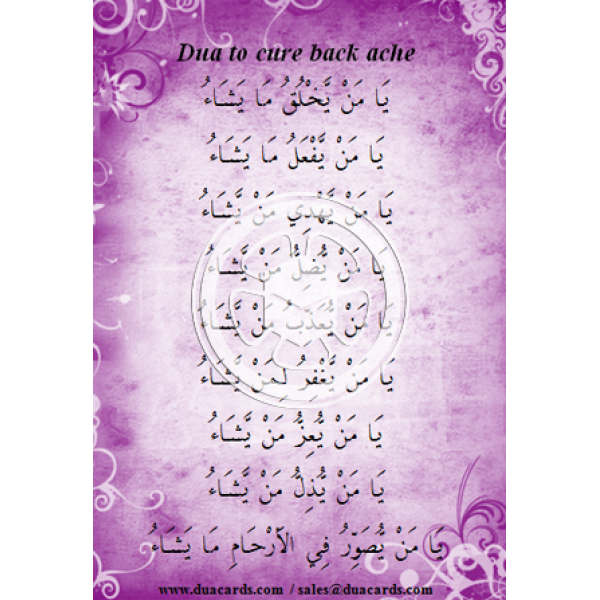 Dua to cure back ache
يَا مَنْ يَّخْلُقُ مَا يَشَاءُ
يَا مَنْ يَّفْعَلُ مَا يَشَاءُ
يَا مَنْ يَّهْدِي مَنْ يَّشَاءُ
يَا مَنْ يُّضِلُّ مَنْ يَّشَاءُ
يَا مَنْ يُّعَذِّبُ مَنْ يَّشَاءُ
يَا مَنْ يَّغْفِرُ لِمَنْ يَّشَاءُ
يَا مَنْ يُّعِزُّ مَنْ يَّشَاءُ
يَا مَنْ يُّذِلُّ مَنْ يَّشَاءُ
يَا مَنْ يُّصَوِّرُ فِي الأَرْحَامِ مَا يَشَاءُ
www.duacards.com / sales@duacards.com